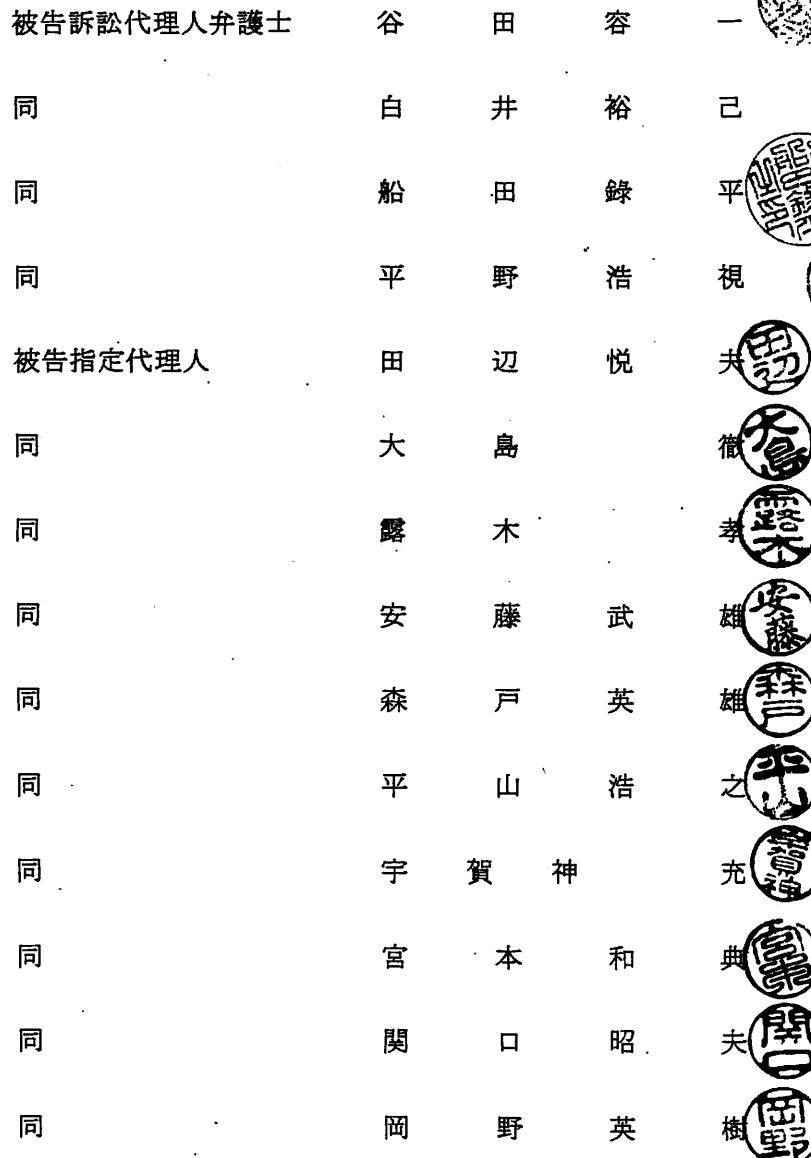 被告訴訟代理人弁護士 谷田容一
同 白井裕己
同 船田錄平
同 平野浩視
被告指定代理人 田辺悦夫 田辺
同 大島徹 大島
同 露木孝 露木
同 安藤武雄 安藤
同 森戸英雄 森戸
同 平山浩之 平山
同 宇賀神充
同 宮本和典 宮本
同 関口昭夫 関口
同 岡野英樹 岡野